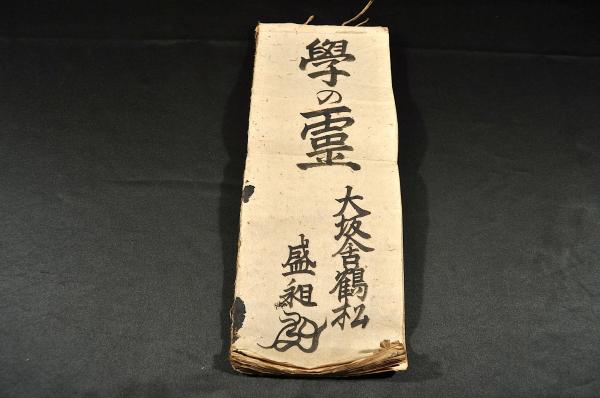 學の霊
大坂舎鶴松
盛租